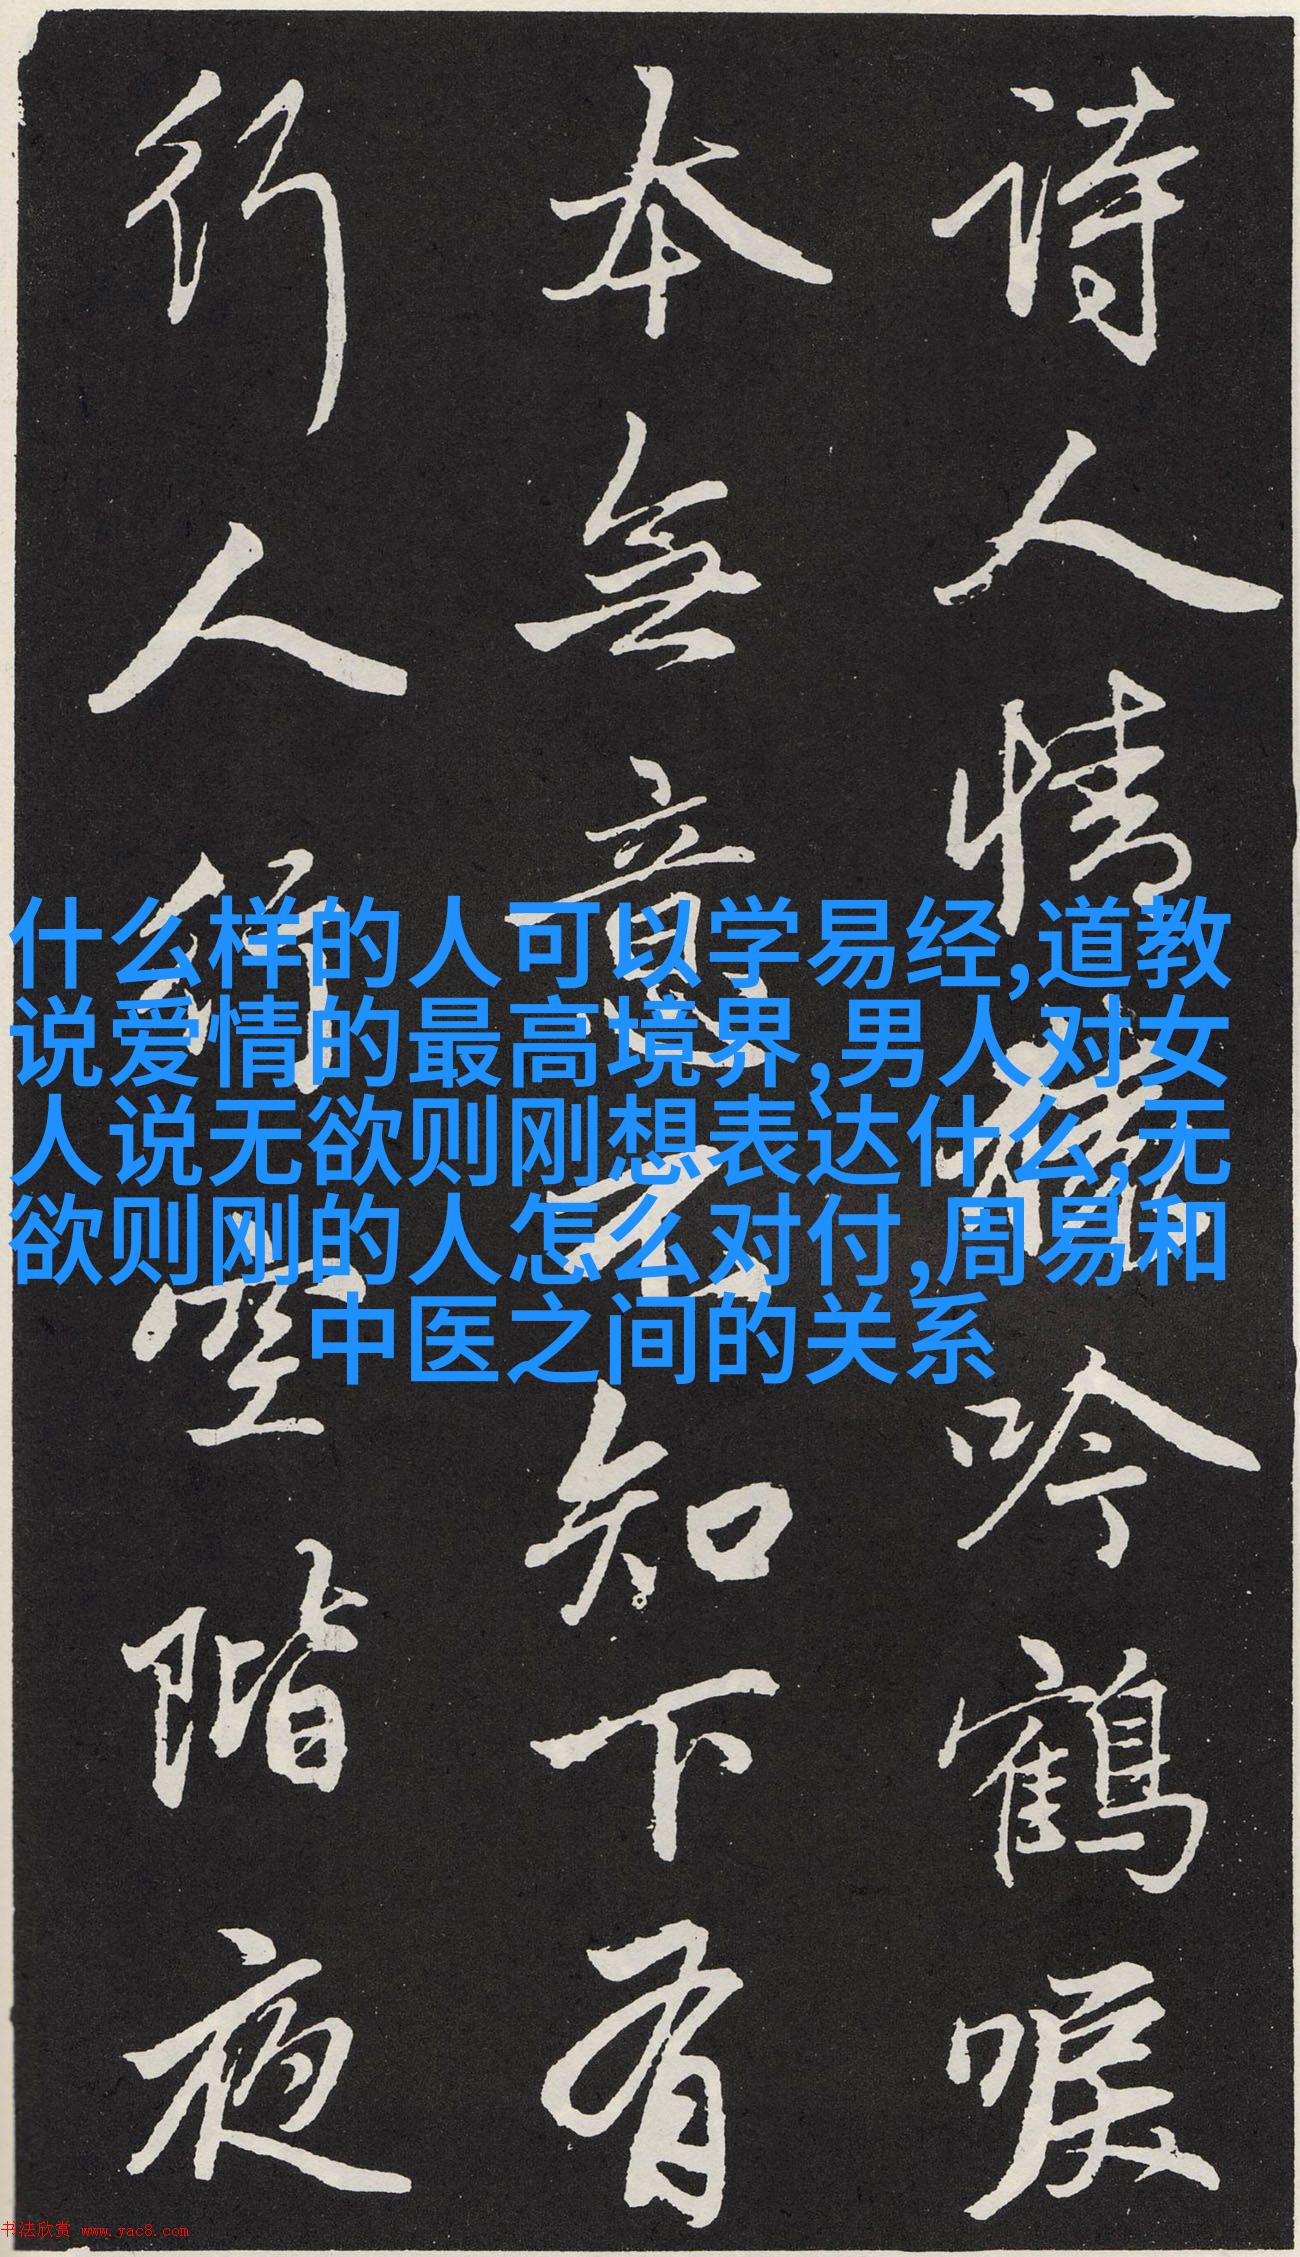 诗人情横吟鹤唳
本無意不知下有
行人行空階夜
什么样的人可以学易经,道教
说爱情的最高境界,男人对女
人说无欲则刚想表达什么,无
欲则刚的人怎么对付,周易和
中医之间的关系
书法欣赏 www.yac8.com